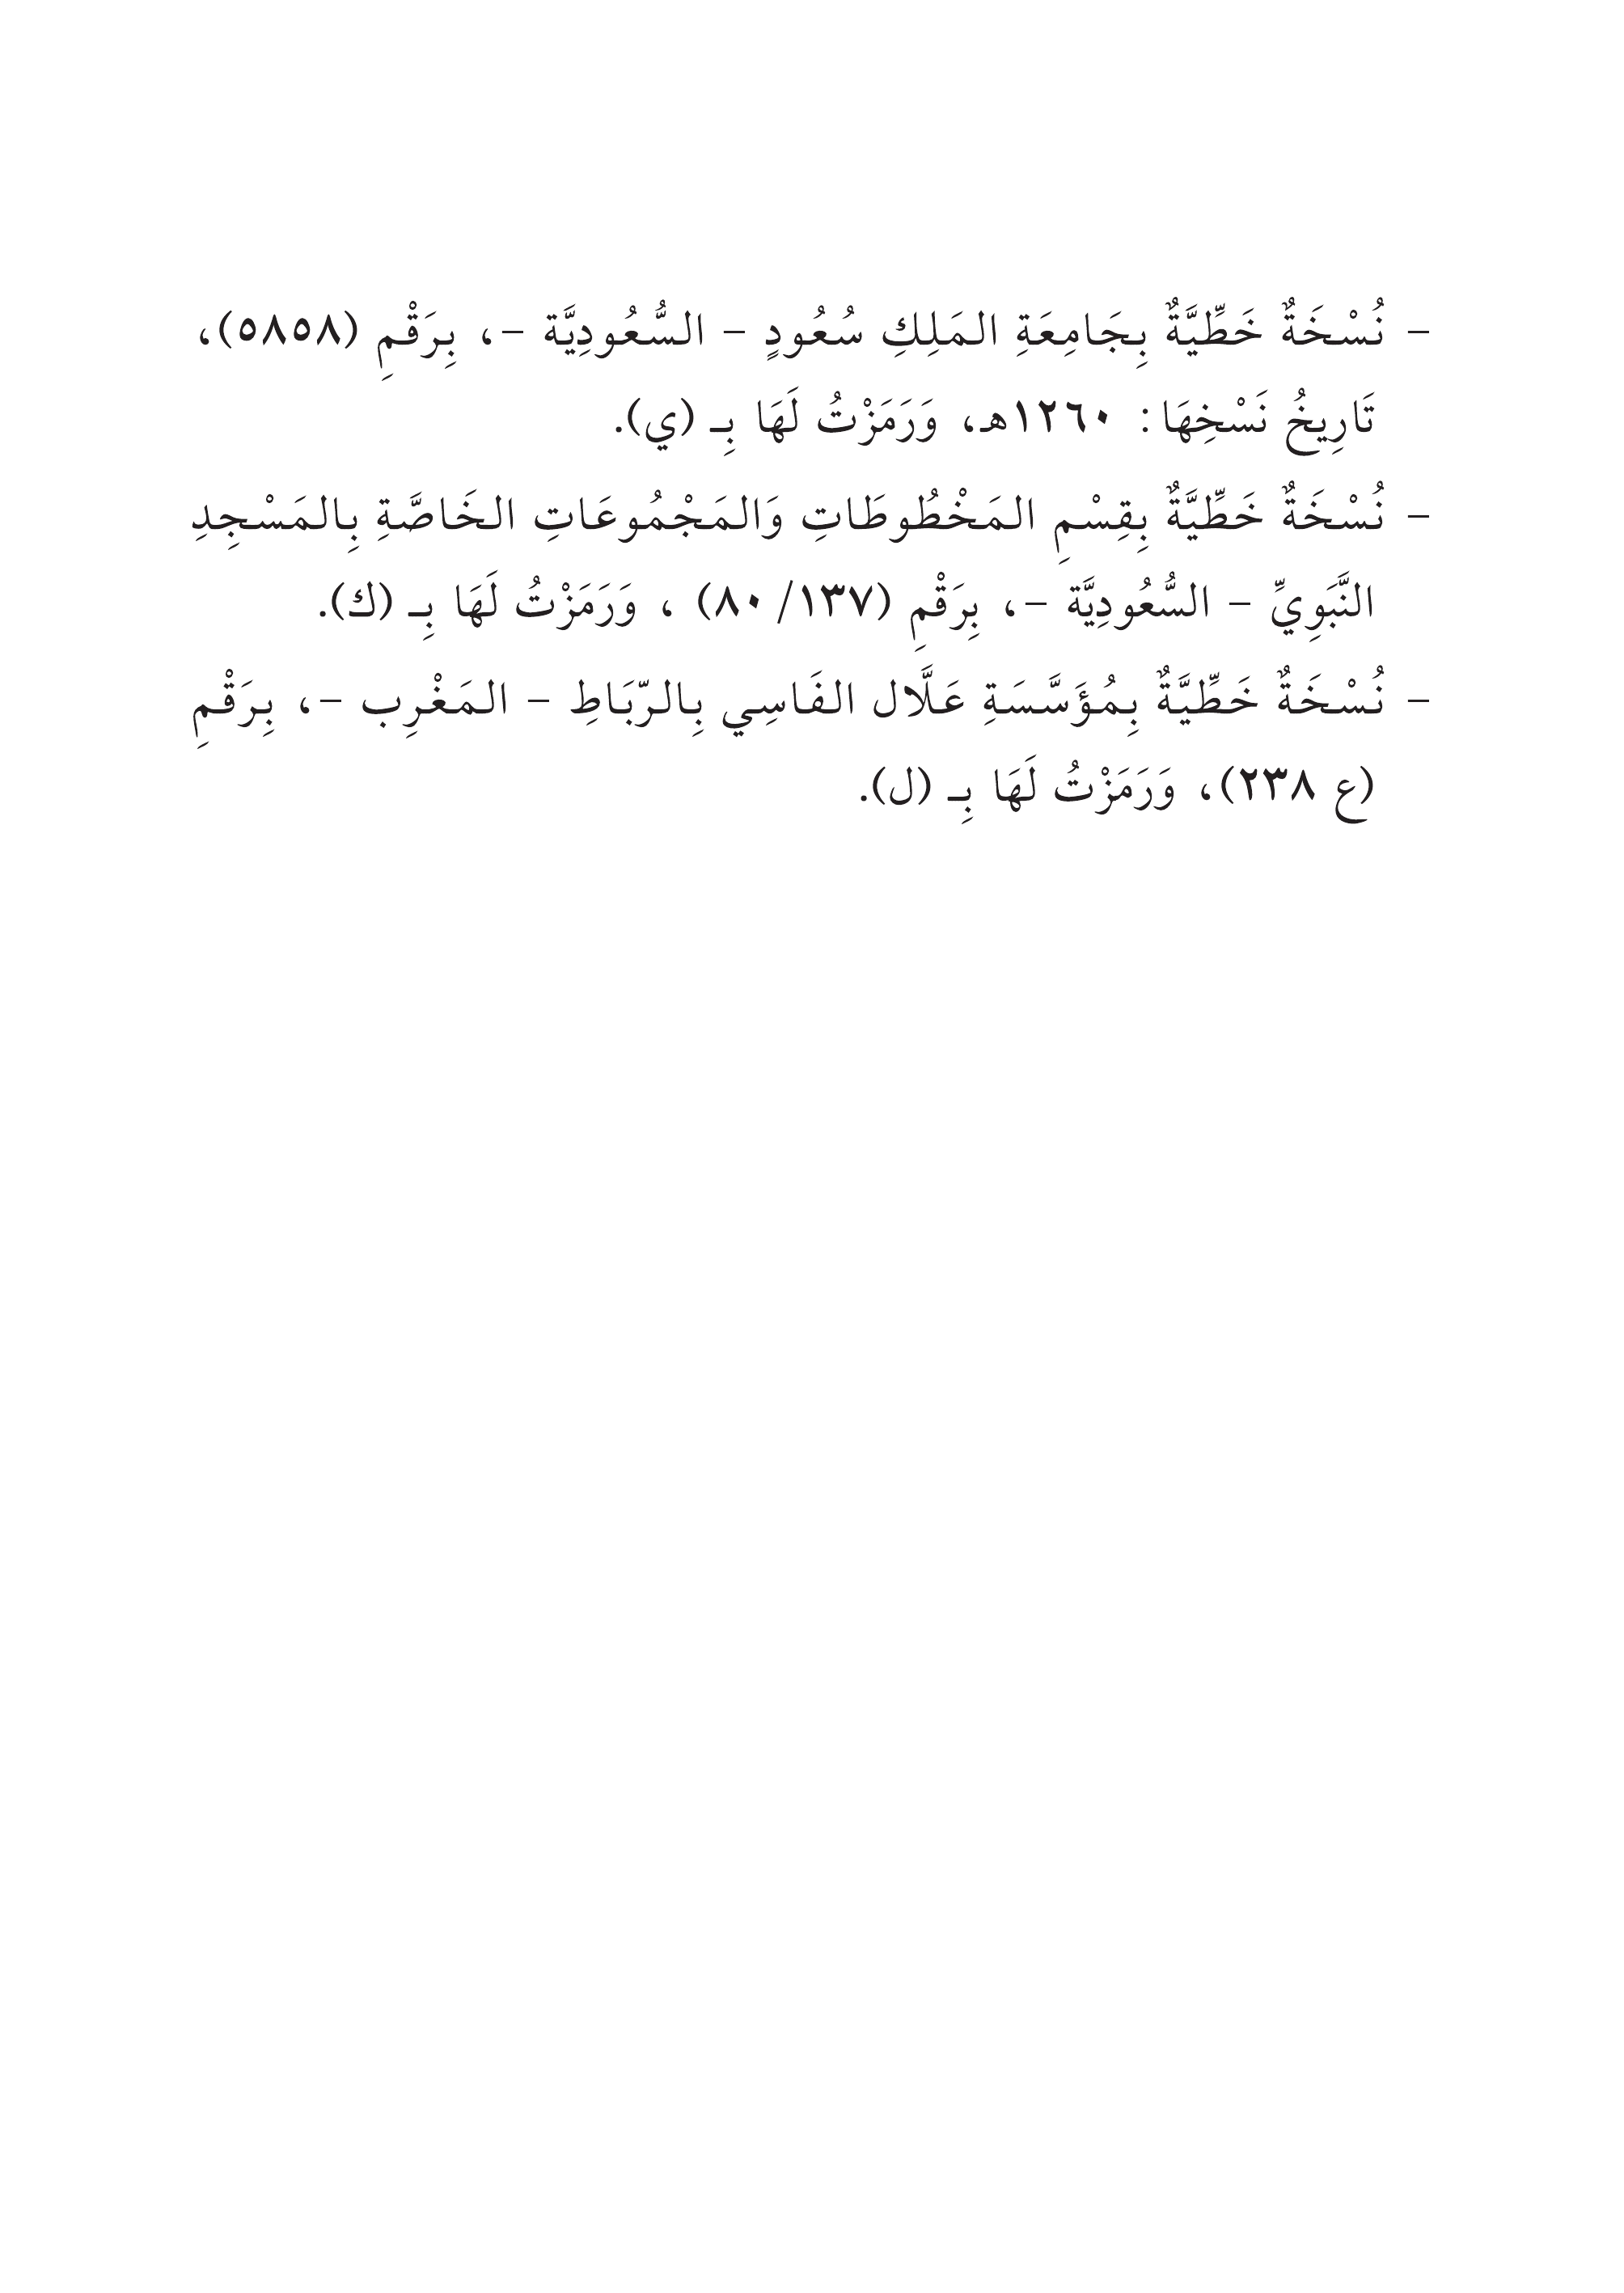 - نُسْخَةٌ خَطِّيَّةٌ بِجَامِعَةِ المَلِكِ سُعُودٍ - السُّعُودِيَّة -، بِرَقْمِ (٥٨٥٨)،
تَارِيخُ نَسْخِهَا: ١٢٦٠هـ، وَرَمَزْتُ لَهَا بِـ (ي).
- نُسْخَةٌ خَطِّيَّةٌ بِقِسْمِ المَخْطُوطَاتِ وَالمَجْمُوعَاتِ الخَاصَّةِ بِالمَسْجِدِ
النَّبَوِيِّ - السُّعُودِيَّة -، بِرَقْمِ (١٣٧/ ٨٠) ، وَرَمَزْتُ لَهَا بِـ (ك).
- نُسْخَةٌ خَطِّيَّةٌ بِمُؤَسَّسَةِ عَلَّال الفَاسِي بِالرّبَاطِ - المَغْرِب -، بِرَقْمِ
(ع ٢٣٨)، وَرَمَزْتُ لَهَا بِـ (ل).